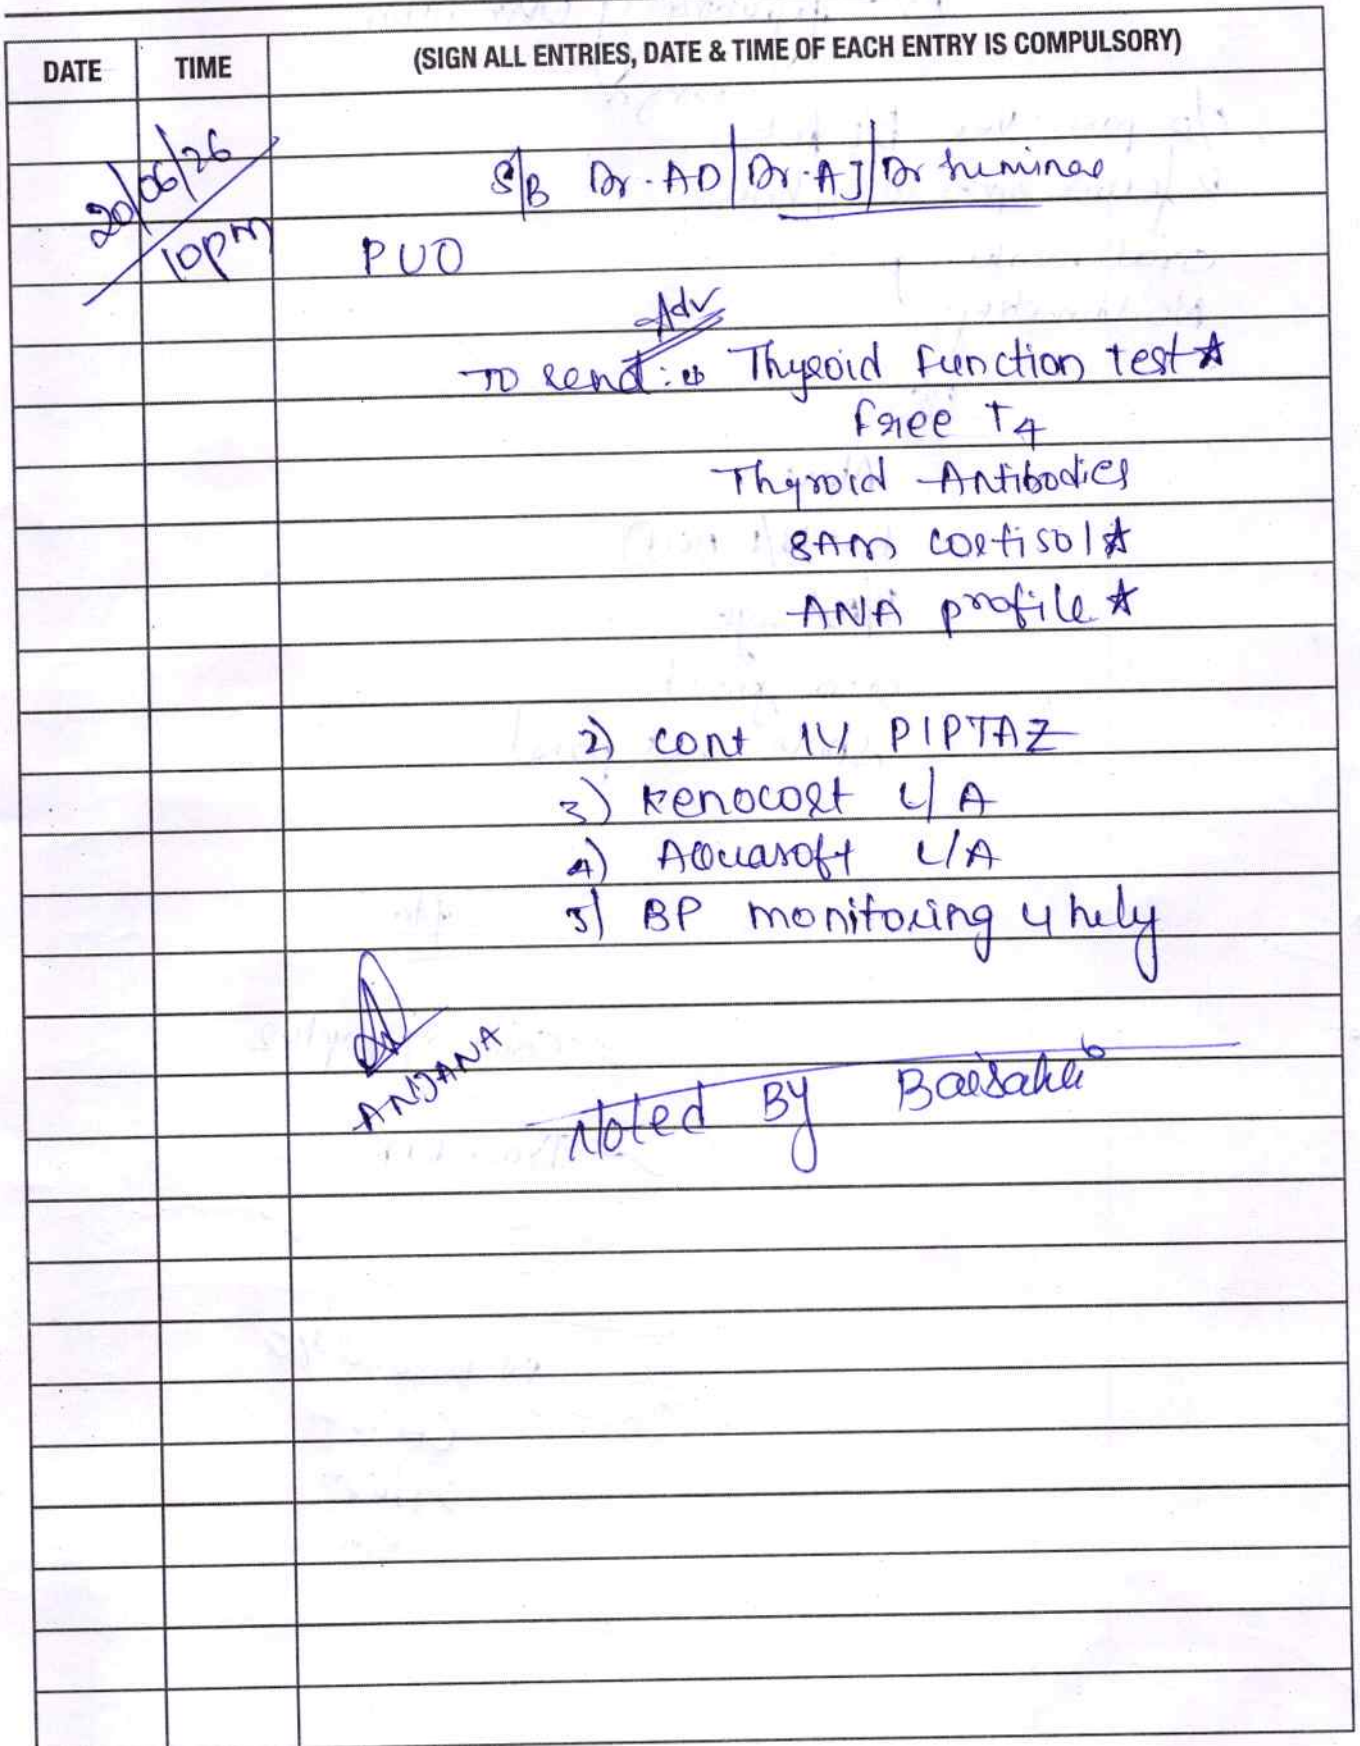 DATE TIME (SIGN ALL ENTRIES, DATE & TIME OF EACH ENTRY IS COMPULSORY)
20/06/26
10pm
S/B Dr. AD/Dr. AJ/Dr
PUO
Adv
TO send: Thyroid Function test ☆
free T4
Thyroid Antibodies
8AM cortisol ☆
ANA profile ☆
2) cont IV PIPTAZ
3) Kenocort L/A
4) Aquasoft L/A
5) BP monitoring 4 hrly
ANJANA
Noted By